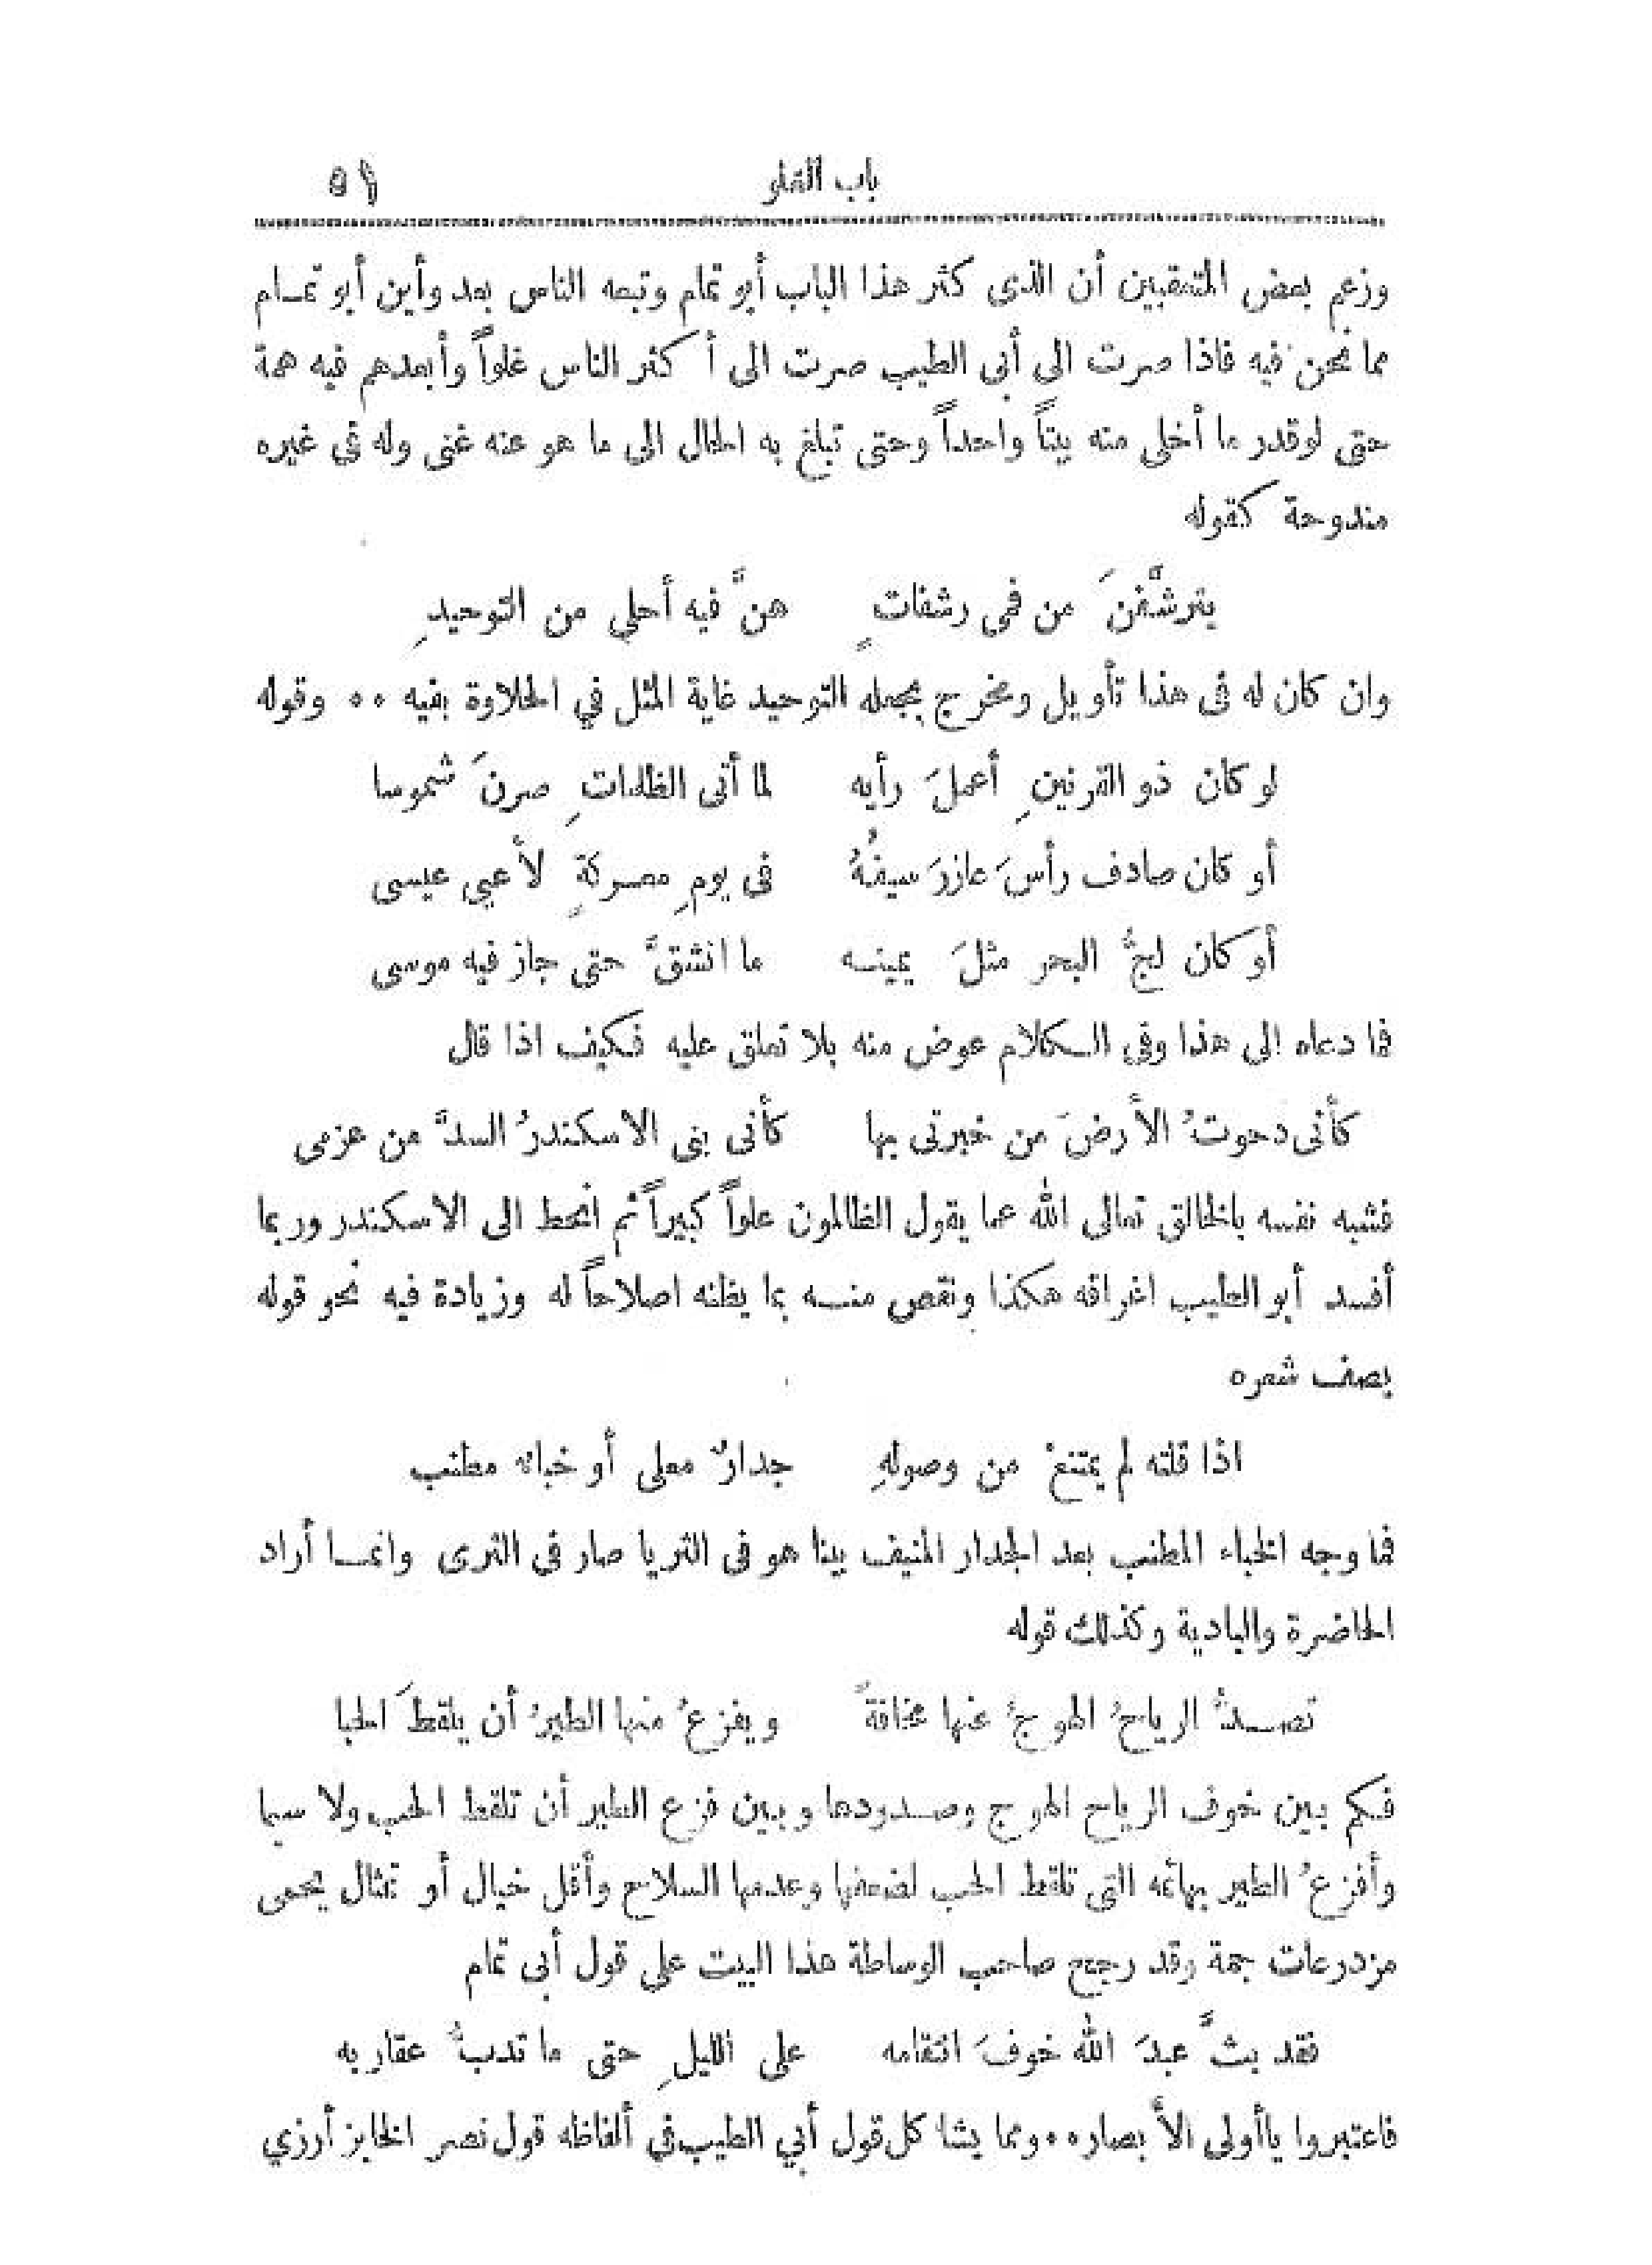 باب الغلو ٥١
وزعم بعض المتعقبين أن الذى كثر هذا الباب أبو تمام وتبعه الناس بعد وأين أبو تمـام
مما نحن فيه فاذا صرت الى أبى الطيب صرت الى أكثر الناس غلواً وأبعدهم فيه همة
حتى لوقدر ما أخلى منه بيتاً واحداً وحتى تبلغ به الحال الى ما هو عنه غنى وله في غيره
مندوحة كقوله
يترشَّفنَ من فمى رشفاتٍ هنَّ فيه أحلي من التوحيدِ
وان كان له فى هذا تأويل ومخرج بجعله التوحيد غاية المثل في الحلاوة بفيه ٠٠ وقوله
لو كان ذو القرنينِ أعملَ رأيه لما أتى الظلماتِ صرنَ شموسا
أو كان صادف رأسَ عازرَ سيفُهُ فى يومِ معـركةٍ لأعيي عيسى
أو كان لجُّ البحر مثلَ يمينـه ما انشقَّ حتى جاز فيه موسى
فما دعاه الى هذا وفى الـكلام عوض منه بلا تعلق عليه فـكيف اذا قال
كأنى دحوتُ الأرضَ من خبرتى بها كأنى بنى الاسكندرُ السدَّ من عزمى
فشبه نفسه بالخالق تعالى الله عما يقول الظالمون علواً كبيراً ثم انحط الى الاسكندر وربما
أفسد أبو الطيب اغراقه هكذا ونقص منـه بما يظنه اصلاحاً له وزيادة فيه نحو قوله
يصف شعره
اذا قلته لم يمتنعْ من وصولهِ جدارٌ معلى أو خباءٌ مطنب
فما وجه الخباء المطنب بعد الجدار المنيف بينا هو فى الثريا صار فى الثرى وانمـا أراد
الحاضرة والبادية وكذلك قوله
تصـدُّ الرياحُ الهوجُ عنها مخافةً ويفزعُ منها الطيرُ أن يلقطَ الحبا
فـكم بين خوف الرياح الهوج وصـدودها وبين فزع الطير أن تلقط الحب ولا سيما
وأفزعُ الطير بهائمه التى تلقط الحب لضعفها وعدمها السلاح وأقل خيال أو تمثال يحمى
مزدرعات جمة وقد رجح صاحب الوساطة هذا البيت علي قول أبى تمام
فقد بثَّ عبدَ الله خوفَ انتقامه على الليلِ حتى ما تدبُّ عقاربه
فاعتبروا ياأولى الأبصار ٠٠ ومما يشاكل قول أبي الطيب في ألفاظه قول نصر الخابز أرزي